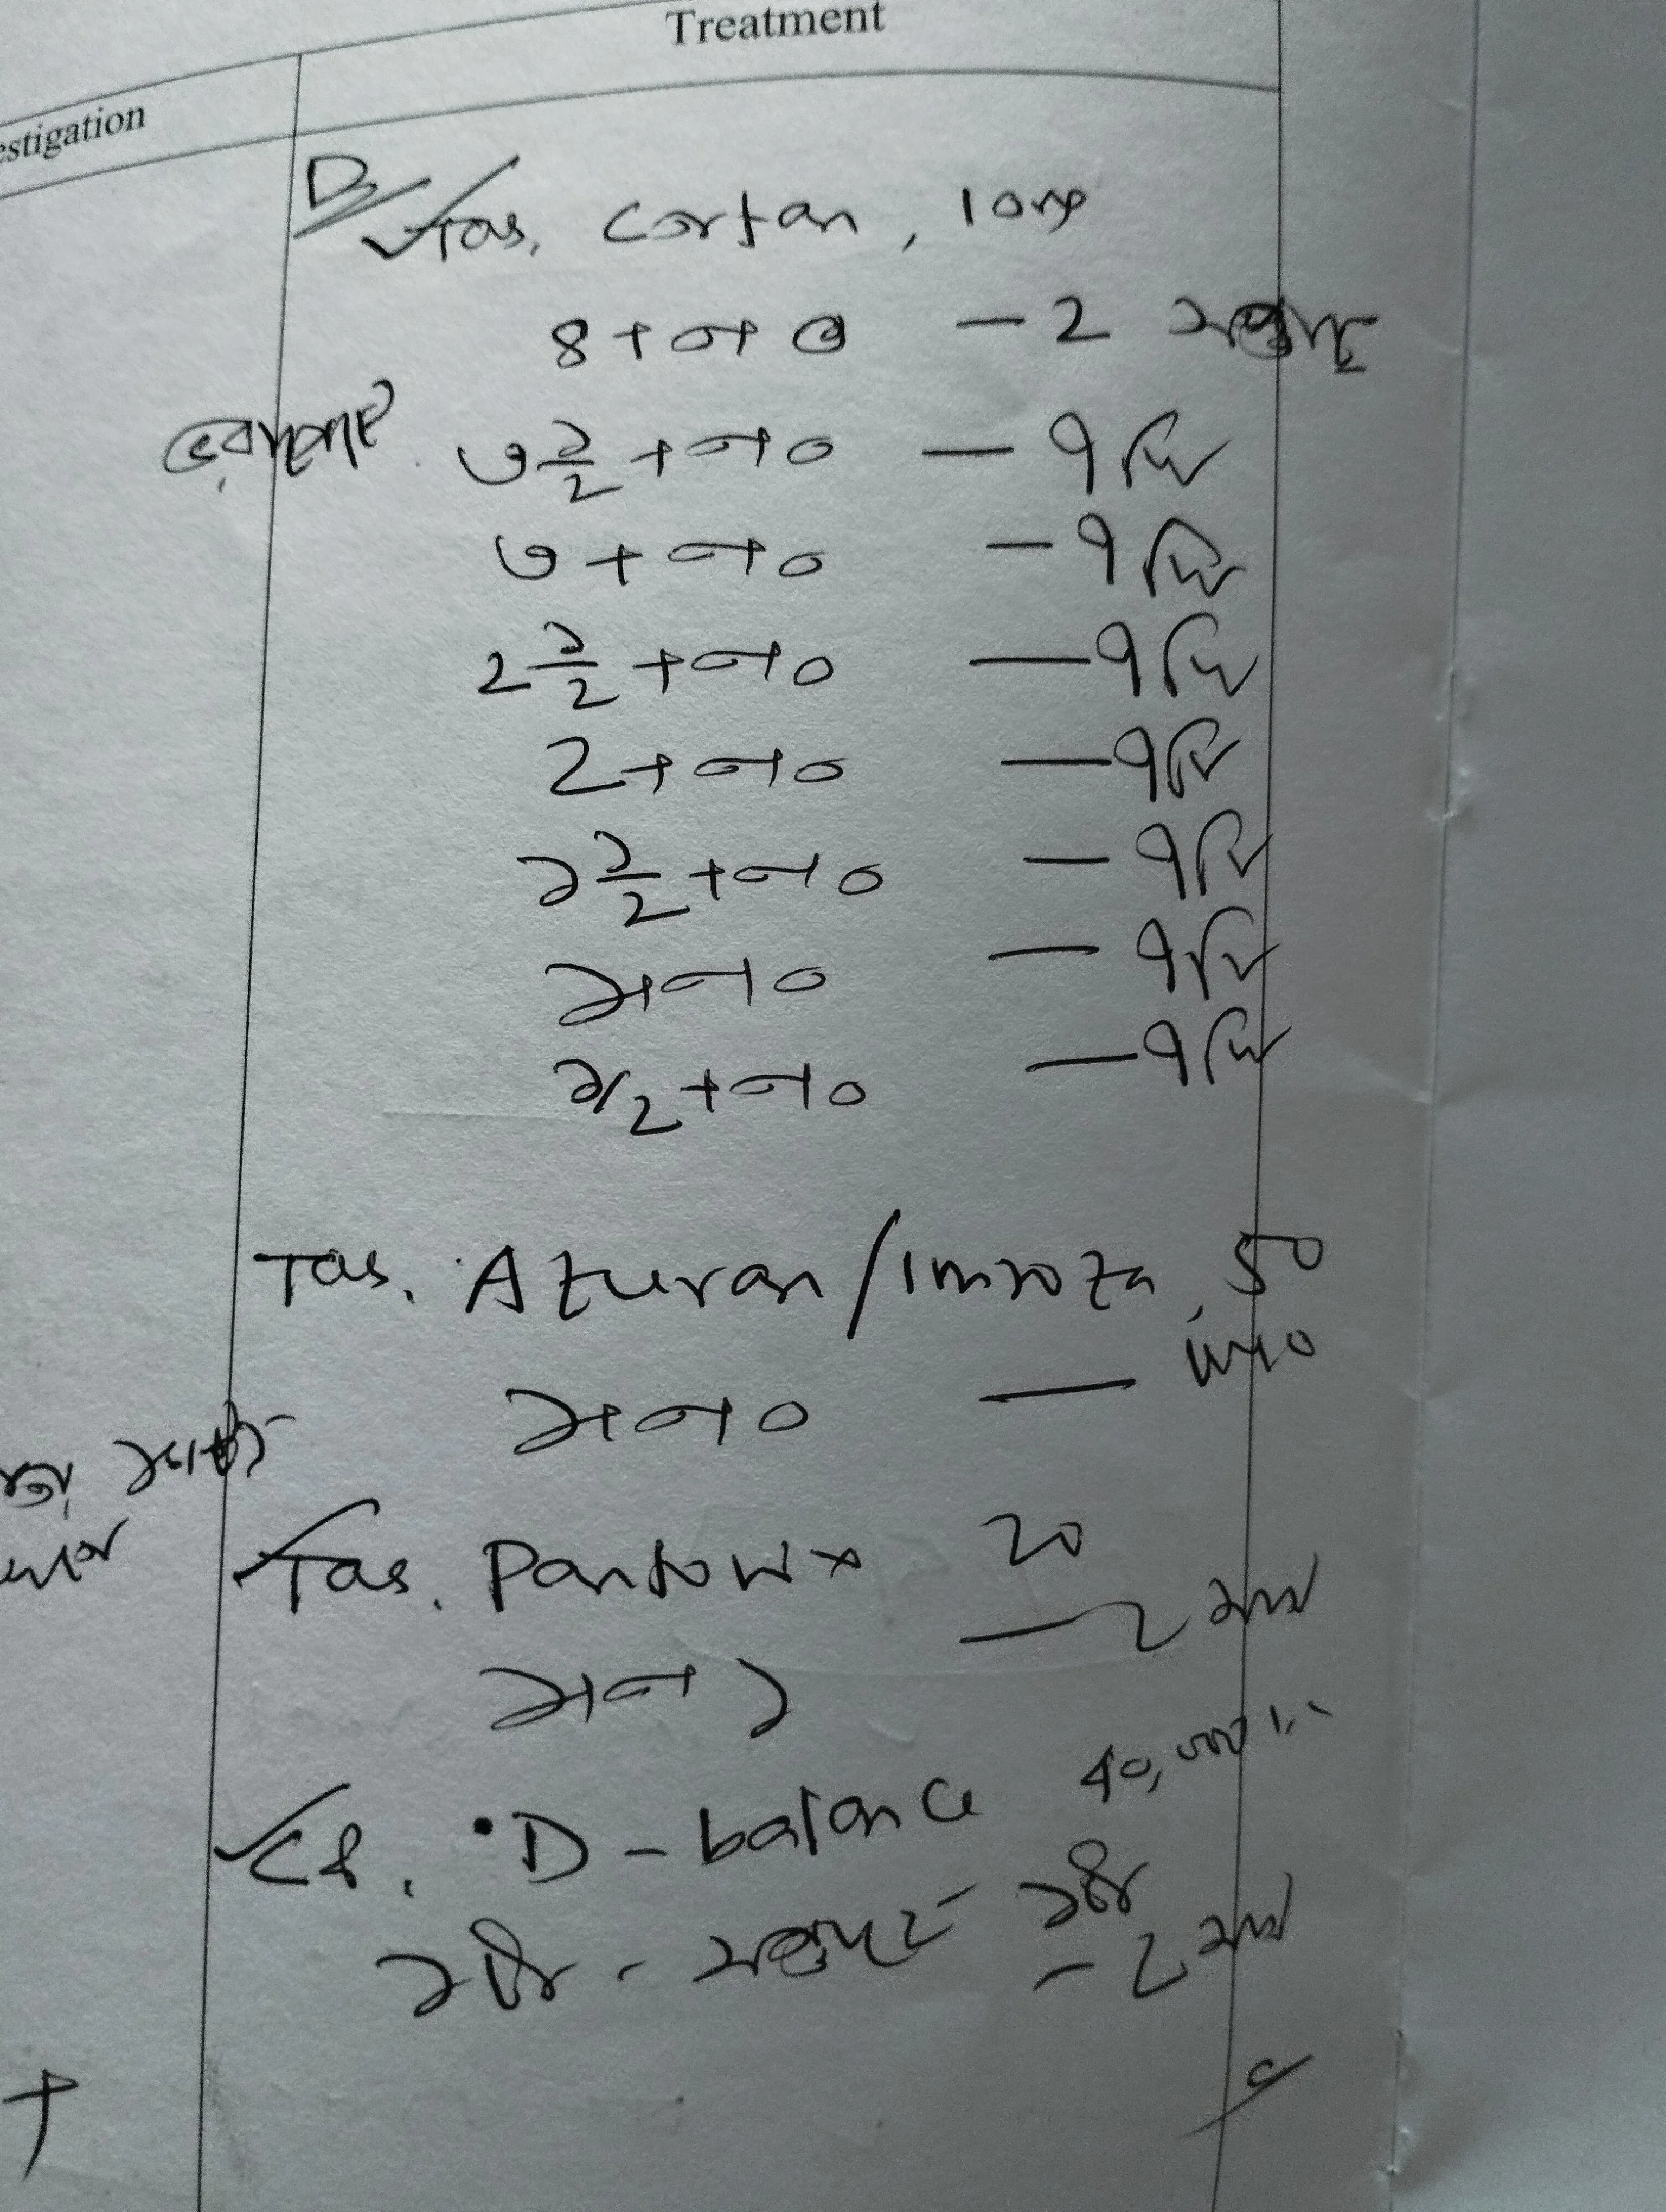 Treatment
estigation
Tab. Cortan, 10mg
৪+০+০ – ২ সপ্তাহ
৩ ১/২ +০+০ – ৭ দিন
৩+০+০ – ৭ দিন
২ ১/২ +০+০ – ৭ দিন
২+০+০ – ৭ দিন
১ ১/২ +০+০ – ৭ দিন
১+০+০ – ৭ দিন
১/২+০+০ – ৭ দিন
Tab. Azuran/Imroza, 50
১+০+০ –
Tab. Pantonix 20
১+০+১ – ২ মাস
Cap. D-balance 40,000 I.U
১টি - সপ্তাহে ১টি
– ২ মাস